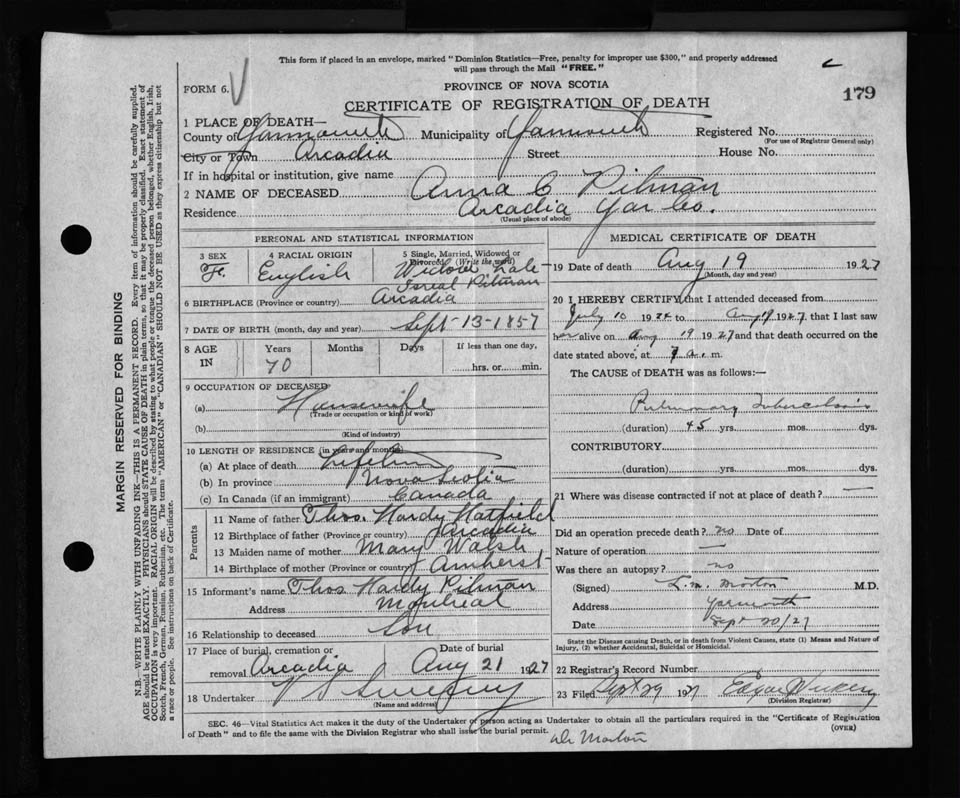 This form if placed in an envelope, marked "Dominion Statistics—Free, penalty for improper use $300," and properly addressed
will pass through the Mail "FREE."
FORM 6.
PROVINCE OF NOVA SCOTIA
179
CERTIFICATE OF REGISTRATION OF DEATH
1 PLACE OF DEATH—
County of Yarmouth Municipality of Yarmouth Registered No.
(For use of Registrar General only)
City or Town Arcadia Street House No.
If in hospital or institution, give name
2 NAME OF DECEASED Anna C Pitman
Residence Arcadia Yar Co.
(Usual place of abode)
PERSONAL AND STATISTICAL INFORMATION
3 SEX 4 RACIAL ORIGIN 5 Single, Married, Widowed or
Divorced (Write the word)
F. English Widow late
Isreal Pitman
6 BIRTHPLACE (Province or country) Arcadia
7 DATE OF BIRTH (month, day and year) Sept-13-1857
8 AGE IN Years Months Days If less than one day,
70 hrs. or min.
9 OCCUPATION OF DECEASED
(a) Housewife
(Trade or occupation or kind of work)
(b)
(Kind of industry)
10 LENGTH OF RESIDENCE (in years and months)
(a) At place of death Lifetime
(b) In province Nova Scotia
(c) In Canada (if an immigrant) Canada
Parents
11 Name of father Thos. Hardy Hatfield
12 Birthplace of father (Province or country) Arcadia
13 Maiden name of mother Mary Walsh
14 Birthplace of mother (Province or country) Amherst
15 Informant's name Thos Hardy Pitman
Address Montreal
16 Relationship to deceased Son
17 Place of burial, cremation or Date of burial
removal Arcadia Aug 21 1927
18 Undertaker V S Sweeny
(Name and address)
MEDICAL CERTIFICATE OF DEATH
19 Date of death Aug 19 1927
(Month, day and year)
20 I HEREBY CERTIFY that I attended deceased from
July 10 1926 to Aug 19 1927, that I last saw
her alive on Aug 19 1927 and that death occurred on the
date stated above, at 7 a. m.
The CAUSE of DEATH was as follows:—
Pulmonary Tuberculosis
(duration) 45 yrs. mos. dys.
CONTRIBUTORY.
(duration) yrs. mos. dys.
21 Where was disease contracted if not at place of death? —
Did an operation precede death? no Date of
Nature of operation —
Was there an autopsy? no
(Signed) L. M. Morton M.D.
Address Yarmouth
Date Sept 20/27
State the Disease causing Death, or in death from Violent Causes, state (1) Means and Nature of
Injury, (2) whether Accidental, Suicidal or Homicidal.
22 Registrar's Record Number
23 Filed Sept 29 1927 Edgar
(Division Registrar)
SEC. 46—Vital Statistics Act makes it the duty of the Undertaker or person acting as Undertaker to obtain all the particulars required in the "Certificate of Registration
of Death" and to file the same with the Division Registrar who shall issue the burial permit.
(OVER)
Dr Morton
MARGIN RESERVED FOR BINDING
N.B.—WRITE PLAINLY WITH UNFADING INK—THIS IS A PERMANENT RECORD. Every item of information should be carefully supplied.
AGE should be stated EXACTLY. PHYSICIANS should STATE CAUSE OF DEATH in plain terms, so that it may be properly classified. Exact statement of
OCCUPATION is very important. RACIAL ORIGIN will be described by stating to what people or tongue the deceased person belonged, whether English, Irish,
Scotch, French, German, Russian, Ruthenian, etc. The terms "AMERICAN" or "CANADIAN" SHOULD NOT BE USED as they express citizenship but not
a race or people. See instructions on back of Certificate.